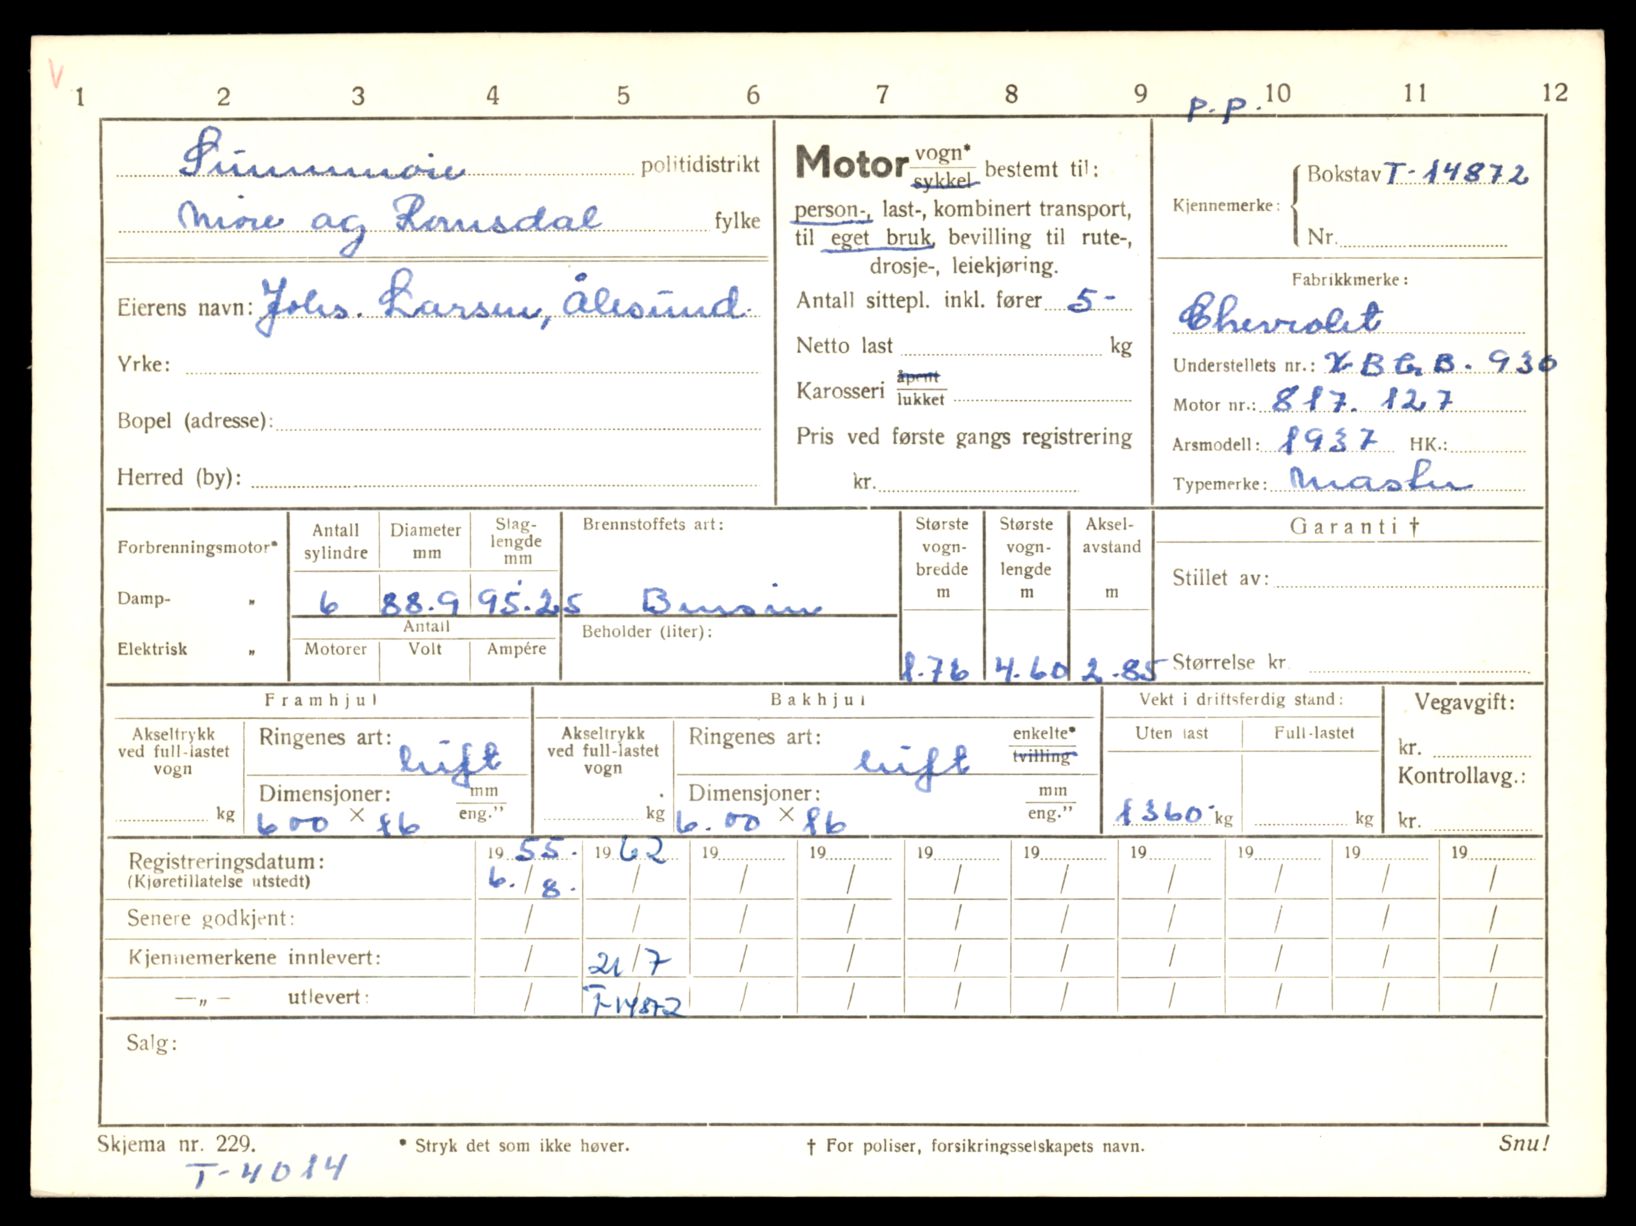 V
1 2 3 4 5 6 7 8 9 10 11 12
P.P.
Sunnmøre politidistrikt
Møre og Romsdal fylke
Eierens navn: Johs. Larsen, Ålesund.
Yrke:
Bopel (adresse):
Herred (by):
Motor vogn* sykkel bestemt til:
person-, last-, kombinert transport,
til eget bruk, bevilling til rute-,
drosje-, leiekjøring.
Antall sittepl. inkl. fører 5-
Netto last kg
Karosseri åpent lukket
Pris ved første gangs registrering
kr.
Kjennemerke: Bokstav T-14872
Nr.
Fabrikkmerke:
Chevrolet
Understellets nr.: B. 930
Motor nr.: 817.127
Årsmodell: 1937 HK.:
Typemerke: Master
Forbrenningsmotor*
Damp- „
Elektrisk „
Antall sylindre
Diameter mm
Slag-lengde mm
6 88.9 95.25
Antall
Motorer Volt Ampére
Brennstoffets art:
Bensin
Beholder (liter):
Største vogn-bredde m
1.76
Største vogn-lengde m
4.60
Aksel-avstand m
2.85
Garanti †
Stillet av:
Størrelse kr.
Framhjul
Akseltrykk ved full-lastet vogn
kg
Ringenes art: luft
Dimensjoner: mm eng.”
600 × 16
Bakhjul
Akseltrykk ved full-lastet vogn
kg
Ringenes art: luft enkelte* tvilling
Dimensjoner: mm eng.”
6.00 × 16
Vekt i driftsferdig stand:
Uten last Full-lastet
1360 kg kg
Vegavgift:
kr.
Kontrollavg.:
kr.
Registreringsdatum: 19 55. 19 62 19 19 19 19 19 19 19 19
(Kjøretillatelse utstedt) 6. / 8. / / / / / / / / /
Senere godkjent: / / / / / / / / / /
Kjennemerkene innlevert: / 21/7 / / / / / / / /
—„— utlevert: / T-14872 / / / / / / / /
Salg:
Skjema nr. 229. * Stryk det som ikke høver. † For poliser, forsikringsselskapets navn. Snu!
T-4014